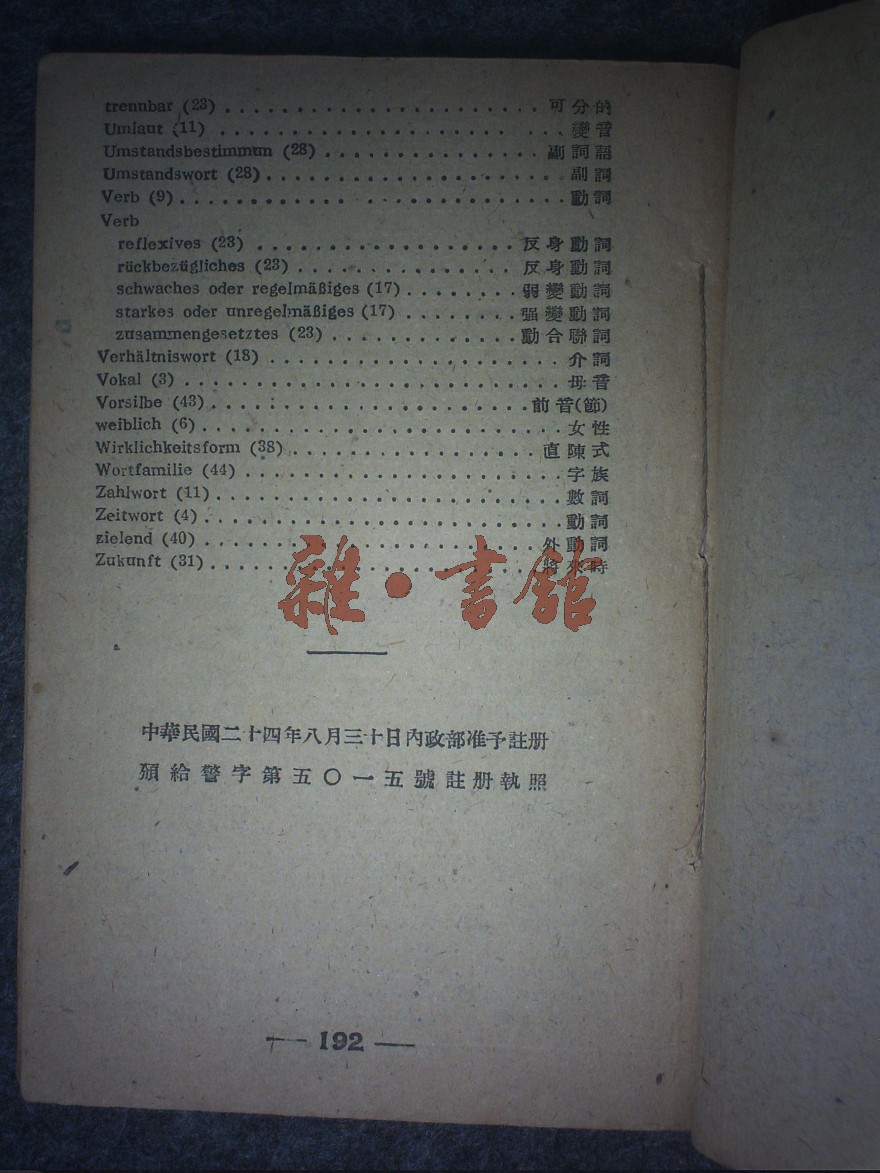 trennbar (23) . . . . . . . . . . . . . . . . . . . . . . . 可分的
Umlaut (11) . . . . . . . . . . . . . . . . . . . . . . . 變音
Umstandsbestimmun (28) . . . . . . . . . . . . . . . . 副詞語
Umstandswort (28) . . . . . . . . . . . . . . . . . . . . 副詞
Verb (9) . . . . . . . . . . . . . . . . . . . . . . . . . . 動詞
Verb
reflexives (23) . . . . . . . . . . . . . . . . . . 反身動詞
rückbezügliches (23) . . . . . . . . . . . . . . . 反身動詞
schwaches oder regelmäßiges (17) . . . . . . . . 弱變動詞
starkes oder unregelmäßiges (17) . . . . . . . . 强變動詞
zusammengesetztes (23) . . . . . . . . . . . . . 動合聯詞
Verhältniswort (18) . . . . . . . . . . . . . . . . . . . . 介詞
Vokal (3) . . . . . . . . . . . . . . . . . . . . . . . . . 母音
Vorsilbe (43) . . . . . . . . . . . . . . . . . . . . . 前音(節)
weiblich (6) . . . . . . . . . . . . . . . . . . . . . . . 女性
Wirklichkeitsform (38) . . . . . . . . . . . . . . . . 直陳式
Wortfamilie (44) . . . . . . . . . . . . . . . . . . . . . 字族
Zahlwort (11) . . . . . . . . . . . . . . . . . . . . . . . 數詞
Zeitwort (4) . . . . . . . . . . . . . . . . . . . . . . . 動詞
zielend (40) . . . . . . . . . . . . . . . . . . . . . . 外動詞
Zukunft (31) . . . . . . . . . . . . . . . . . . . . . . 將來時
雜·書館
中華民國二十四年八月三十日內政部准予註册
頒給警字第五〇一五號註册執照
— 192 —